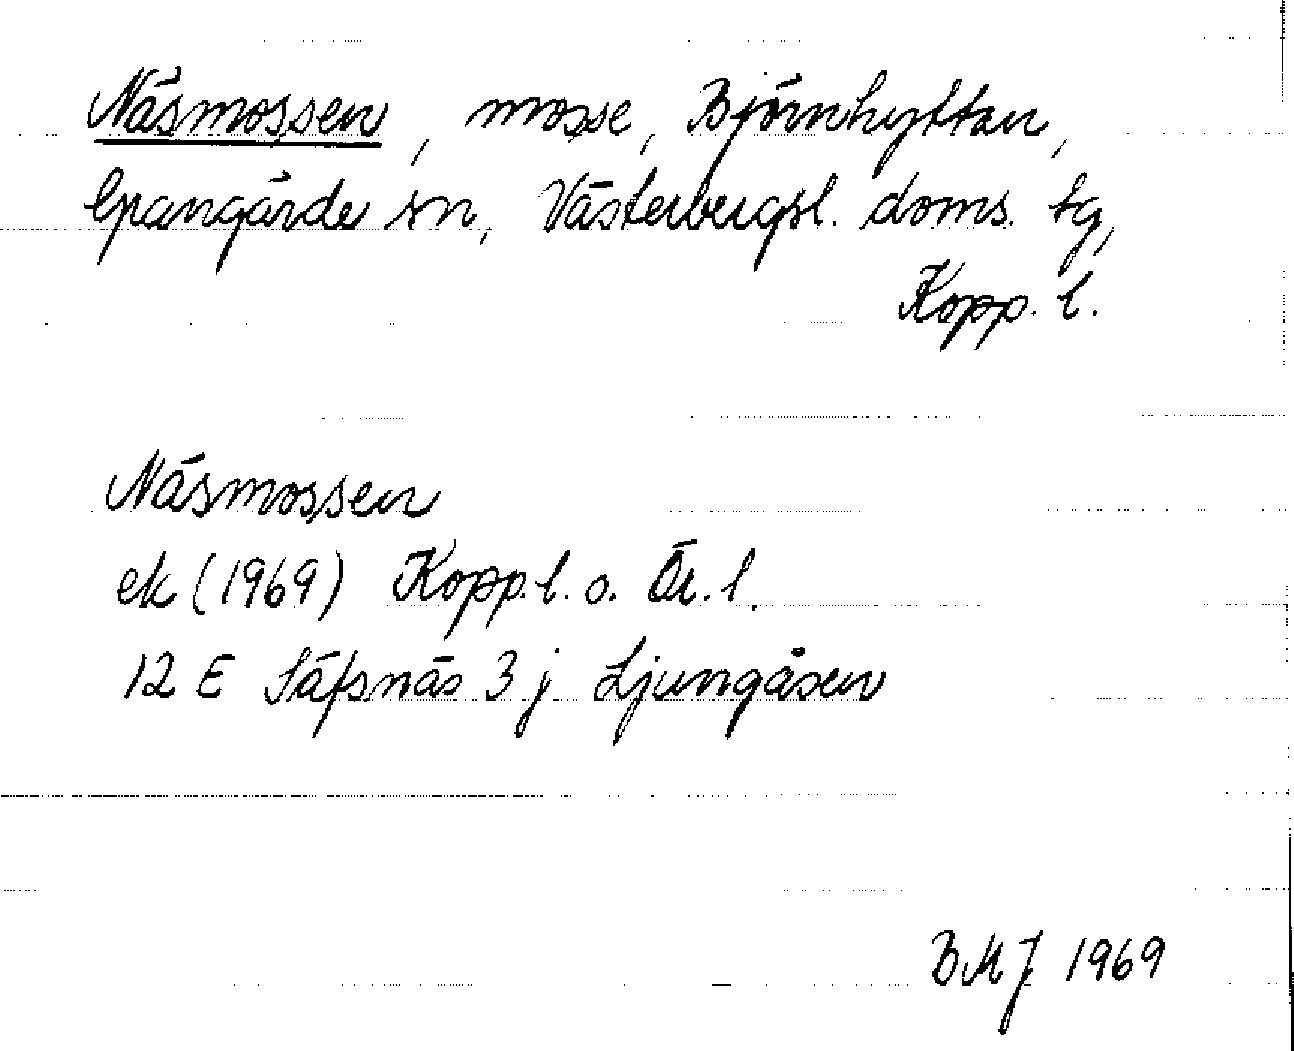 Näsmossen, mosse, Björnhyttan,
Grangärde sn, Västerbergsl. doms. tg,
Kopp. l.
Näsmossen
ek (1969) Kopp. l. o. Ör. l.
12 E Säfsnäs 3 j Ljungåsen
BMJ 1969